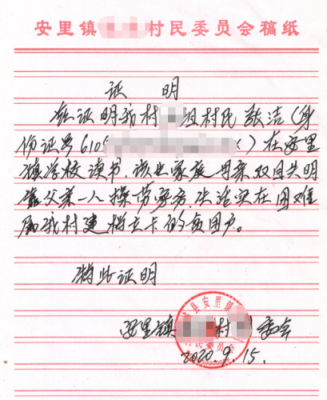 安里镇 村民委员会稿纸
证 明
兹证明我村 组村民 张洁(身
份证号 6105 )在安里
镇学校读书,该生家庭母亲双目失明
靠父亲一人操劳家务,生活实在困难
属我村建档立卡的贫困户。
特此证明
安里镇 村 委会
2020.9.15.